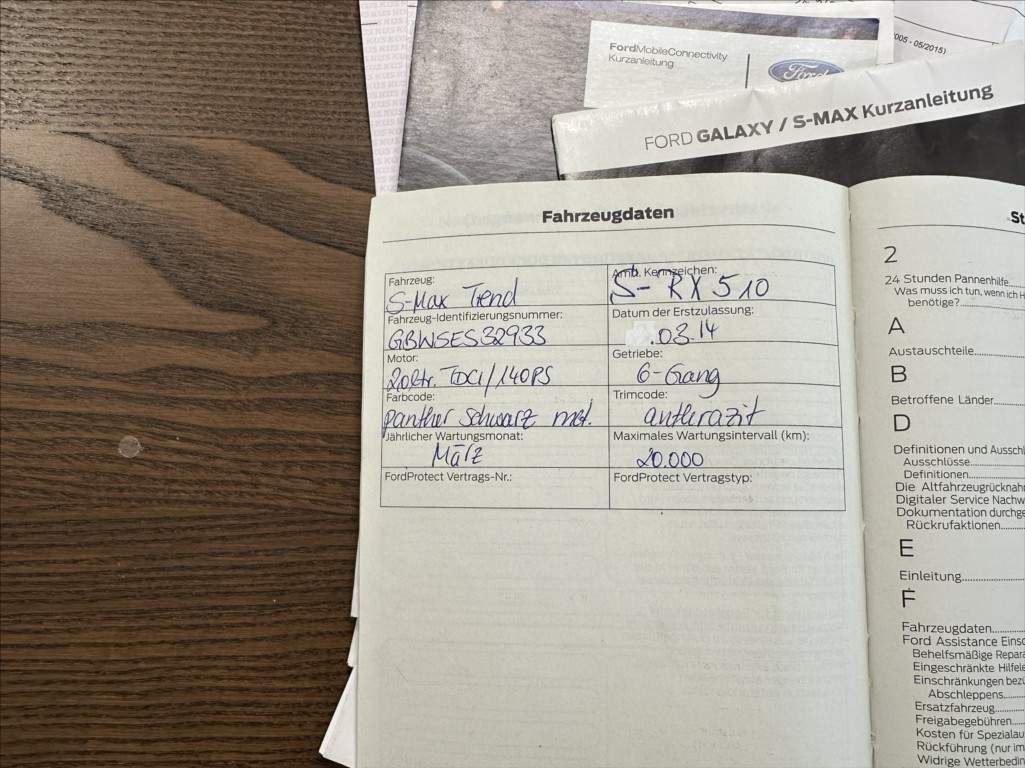 KUS KUS KUS
FordMobileConnectivity
Kurzanleitung
Ford
005 - 05/2015)
FORD GALAXY / S-MAX Kurzanleitung
Fahrzeugdaten
Fahrzeug:
S-Max Trend
Amtl. Kennzeichen:
S-RX 510
Fahrzeug-Identifizierungsnummer:
GBWSES32933
Datum der Erstzulassung:
.03.14
Motor:
2.0 ltr. TDCI/140PS
Getriebe:
6-Gang
Farbcode:
panther schwarz met.
Trimcode:
anthrazit
Jährlicher Wartungsmonat:
März
Maximales Wartungsintervall (km):
20.000
FordProtect Vertrags-Nr.:
FordProtect Vertragstyp:
St
2
24 Stunden Pannenhilfe
Was muss ich tun, wenn ich H
benötige?
A
Austauschteile
B
Betroffene Länder
D
Definitionen und Ausschl
Ausschlüsse
Definitionen
Die Altfahrzeugrücknahr
Digitaler Service Nachw
Dokumentation durchge
Rückrufaktionen
E
Einleitung
F
Fahrzeugdaten
Ford Assistance Einsc
Behelfsmäßige Repara
Eingeschränkte Hilfele
Einschränkungen bezü
Abschleppens
Ersatzfahrzeug
Freigabegebühren
Kosten für Spezialau
Rückführung (nur im
Widrige Wetterbedin